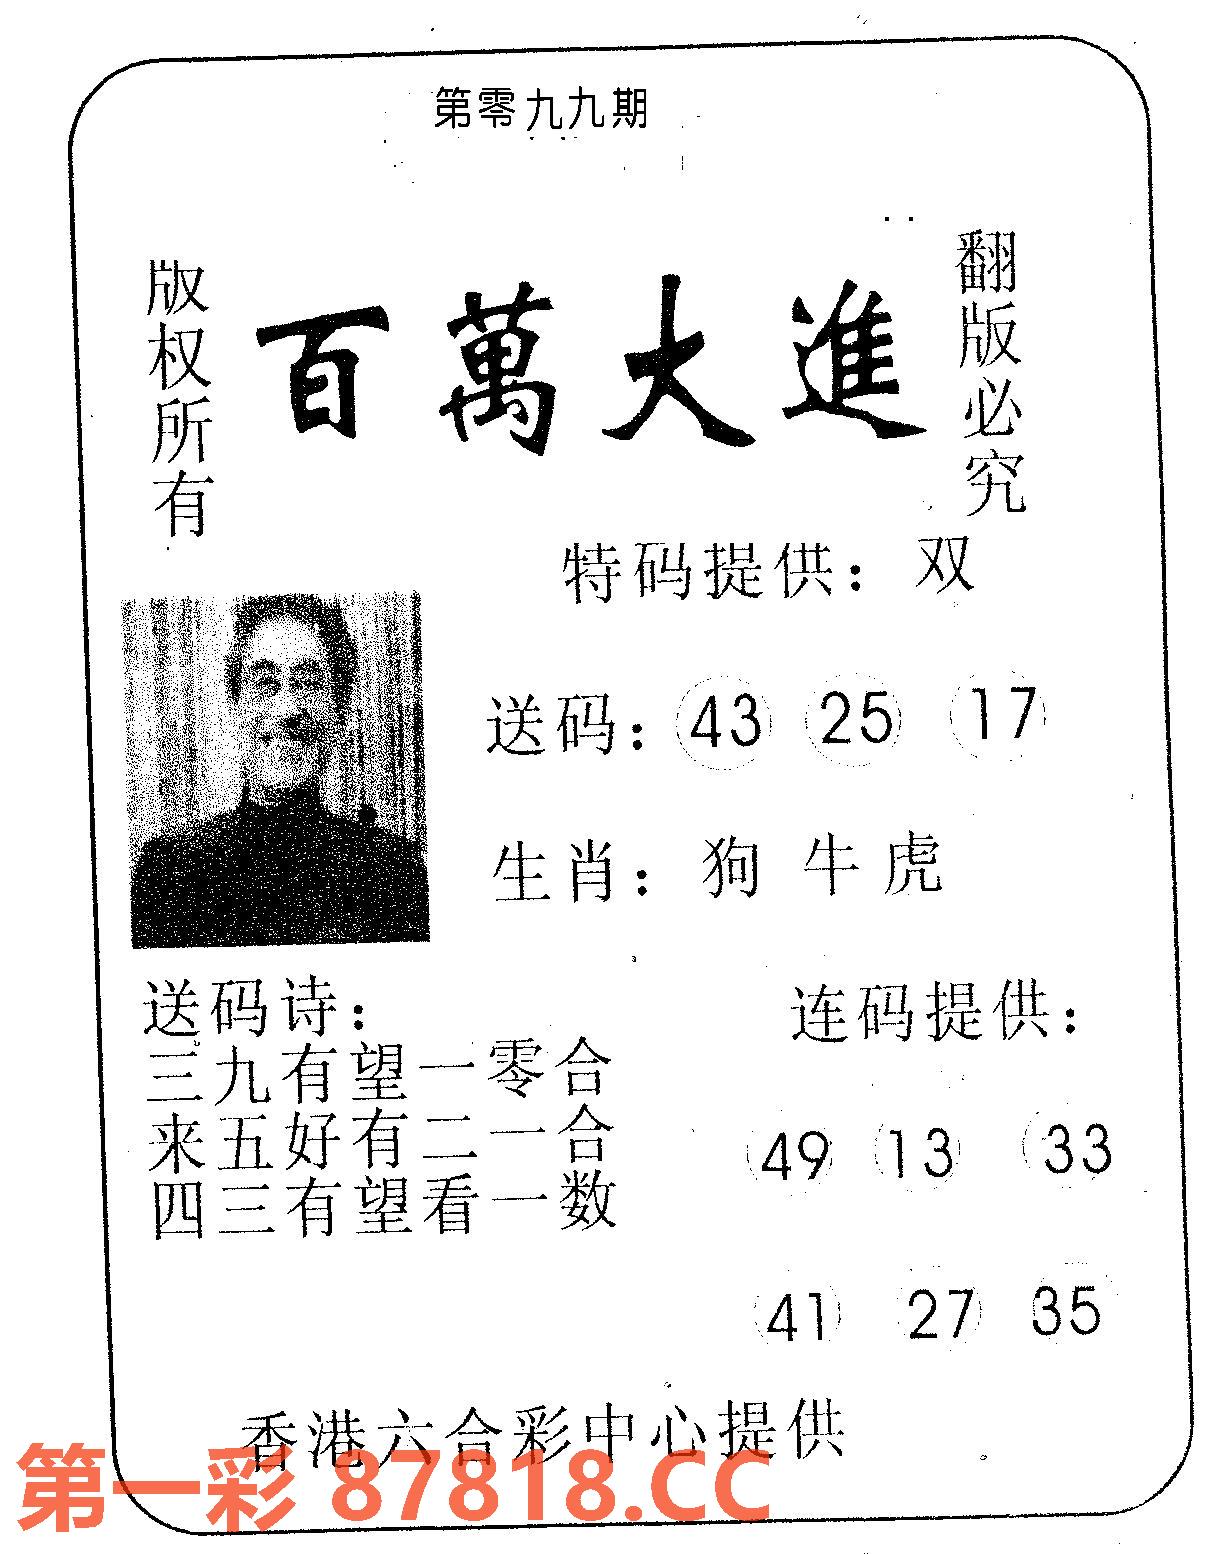 第零九九期
版权所有
百萬大進
翻版必究
特码提供：双
送码：43 25 17
生肖：狗 牛 虎
送码诗：
三九有望一零合
来五好有二一合
四三有望看一数
连码提供：
49 13 33
41 27 35
香港六合彩中心提供
第一彩 87818.CC